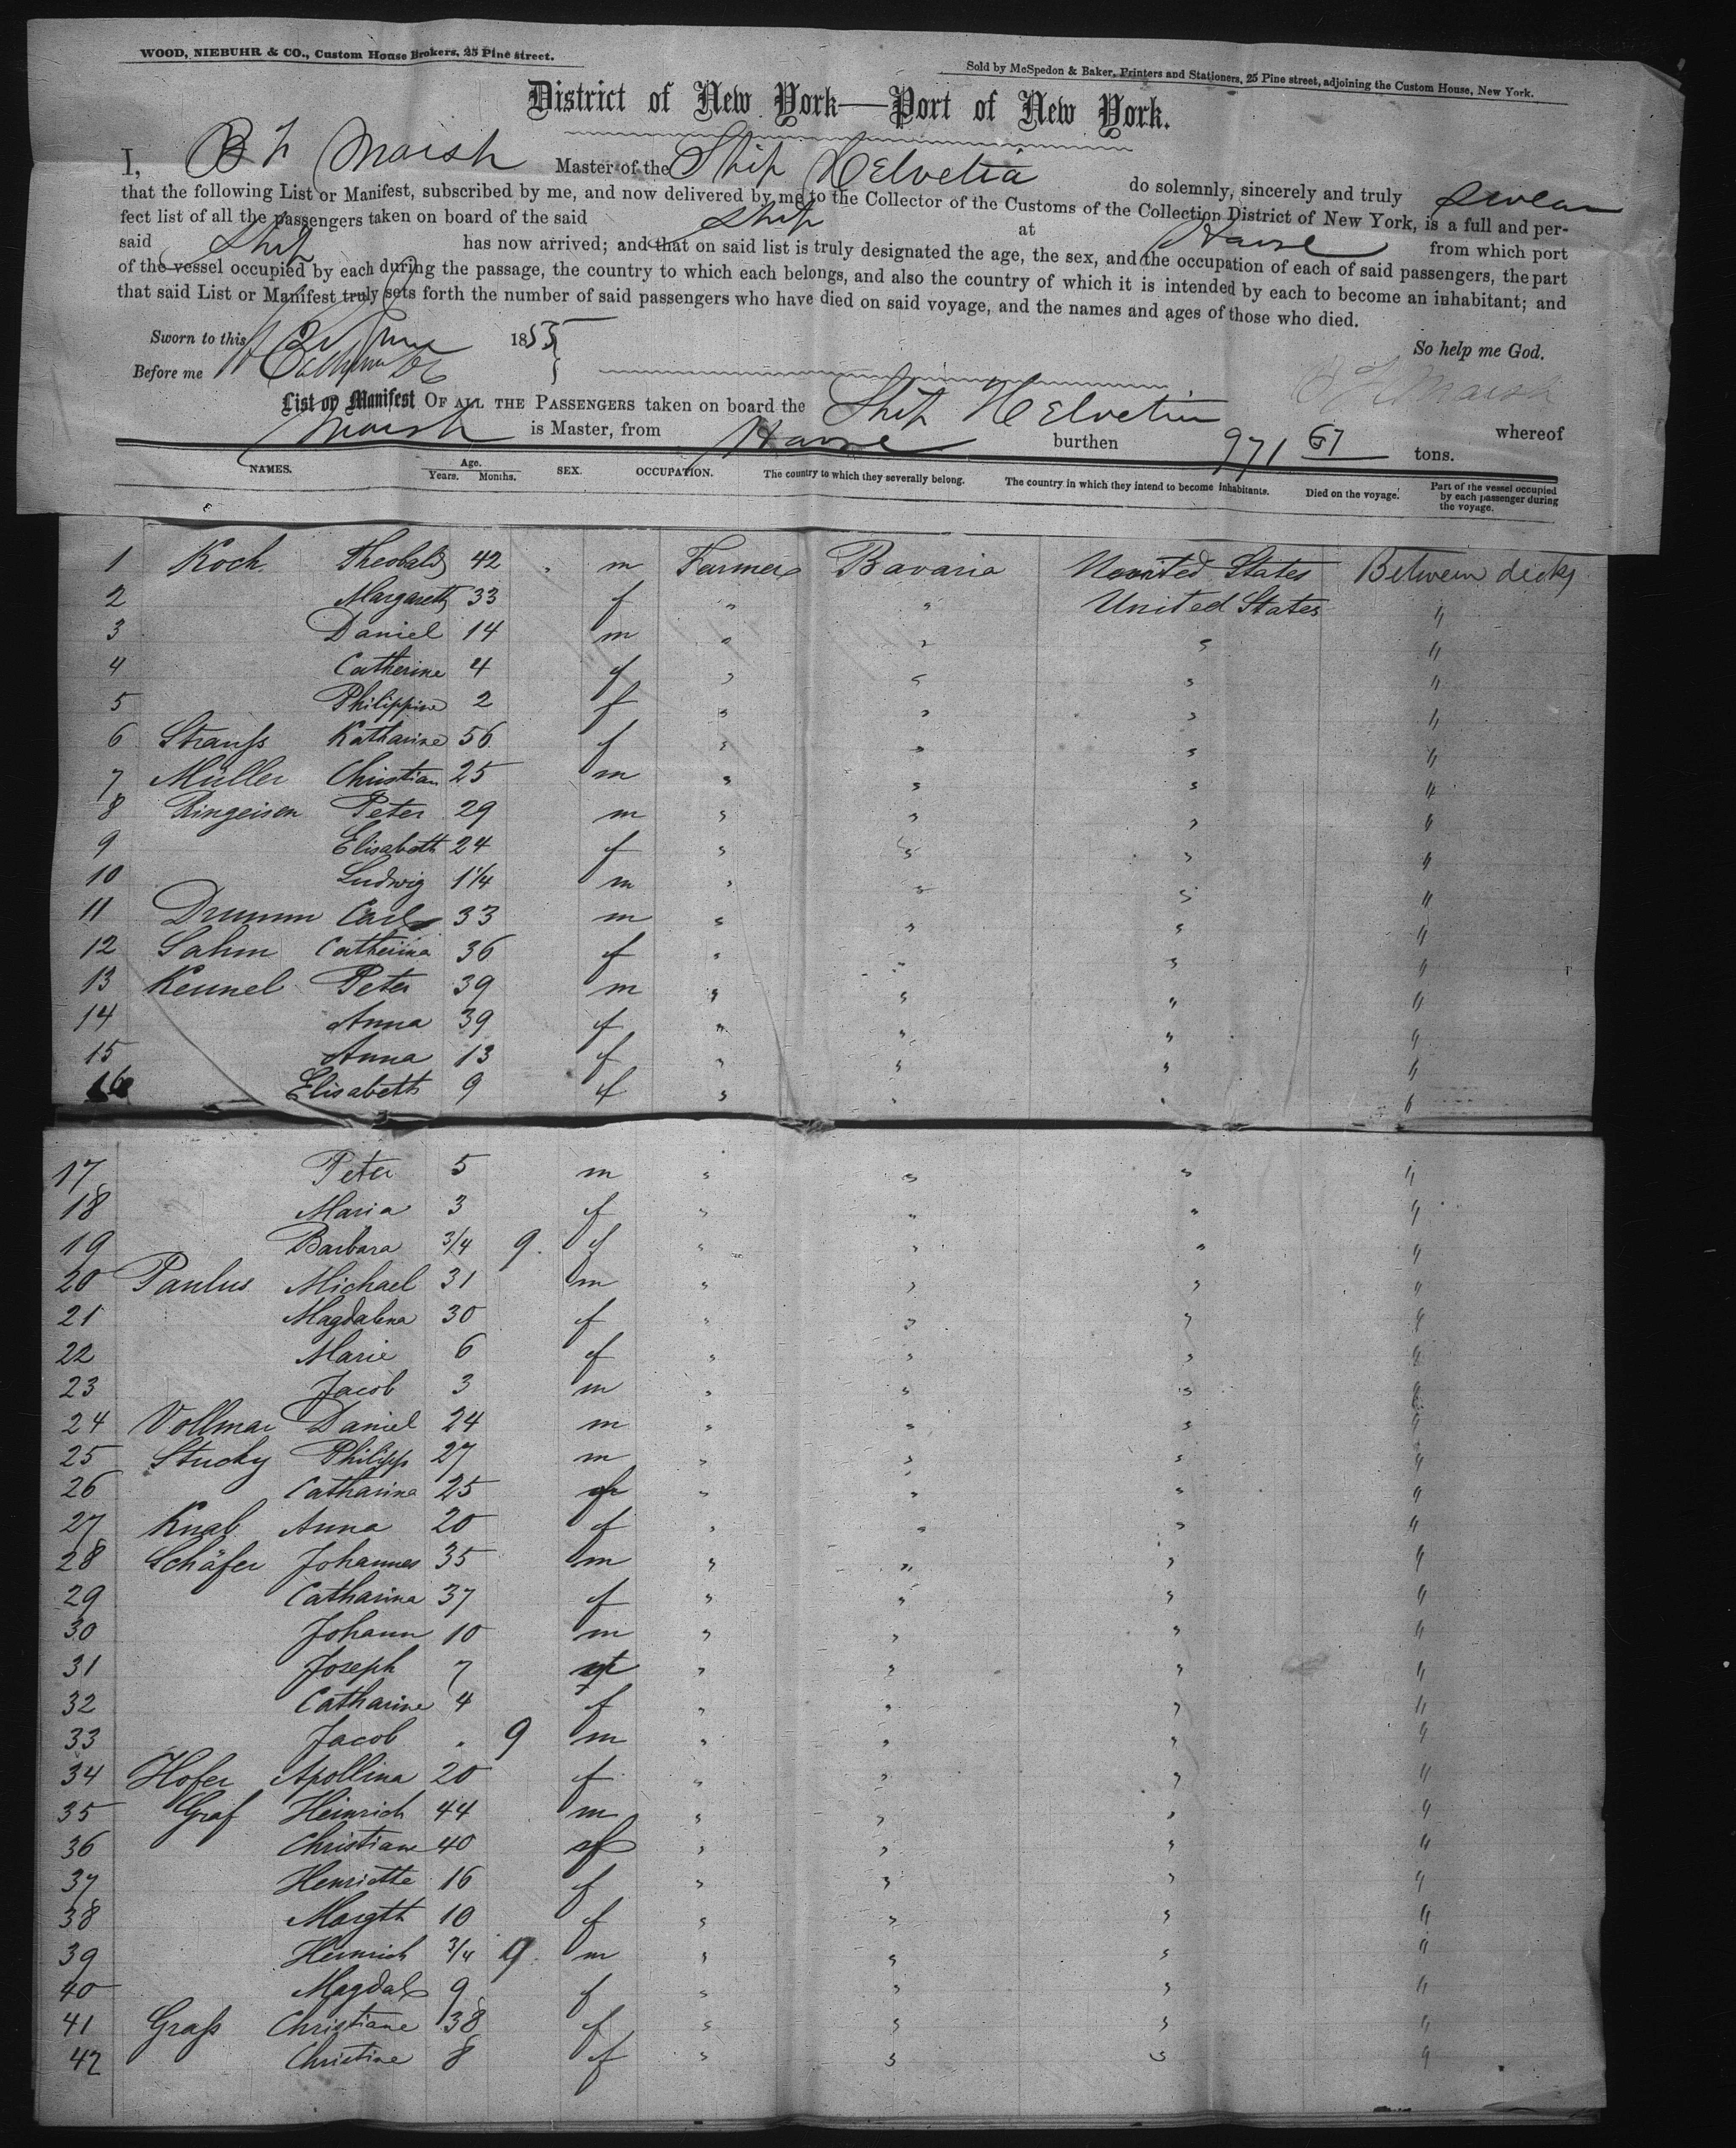 WOOD, NIEBUHR & CO., Custom House Brokers, 25 Pine street.
Sold by McSpedon & Baker, Printers and Stationers, 25 Pine street, adjoining the Custom House, New York.
District of New York—Port of New York.
I, B F Marsh Master of the Ship Helvetia do solemnly, sincerely and truly swear
that the following List or Manifest, subscribed by me, and now delivered by me to the Collector of the Customs of the Collection District of New York, is a full and per-
fect list of all the passengers taken on board of the said Ship at Havre from which port
said Ship has now arrived; and that on said list is truly designated the age, the sex, and the occupation of each of said passengers, the part
of the vessel occupied by each during the passage, the country to which each belongs, and also the country of which it is intended by each to become an inhabitant; and
that said List or Manifest truly sets forth the number of said passengers who have died on said voyage, and the names and ages of those who died.
Sworn to this June 1855
So help me God.
Before me
B F Marsh
List or Manifest OF ALL THE PASSENGERS taken on board the Ship Helvetia whereof
Marsh is Master, from Havre burthen 971 67 tons.
NAMES. Age. Years. Months. SEX. OCCUPATION. The country to which they severally belong. The country in which they intend to become inhabitants. Died on the voyage. Part of the vessel occupied by each passenger during the voyage.
1 Koch Theobald 42 " m Farmer Bavaria United States Between decks
2 Margareth 33 f " " United States "
3 Daniel 14 m " " " "
4 Catherine 4 f " " " "
5 Philippine 2 f " " " "
6 Strauß Katharine 56 f " " " "
7 Müller Christian 25 m " " " "
8 Ringeisen Peter 29 m " " " "
9 Elisabeth 24 f " " " "
10 Ludwig 1 1/4 m " " " "
11 Drumm Carl 33 m " " " "
12 Sahm Catherina 36 f " " " "
13 Kennel Peter 39 m " " " "
14 Anna 39 f " " " "
15 Anna 13 f " " " "
16 Elisabeth 9 f " " " "
17 Peter 5 m " " " "
18 Maria 3 f " " " "
19 Barbara 3/4 9. f " " " "
20 Paulus Michael 31 m " " " "
21 Magdalena 30 f " " " "
22 Marie 6 f " " " "
23 Jacob 3 m " " " "
24 Vollmar Daniel 24 m " " " "
25 Stucky Philipp 27 m " " " "
26 Catharina 25 f " " " "
27 Knab Anna 20 f " " " "
28 Schäfer Johannes 35 m " " " "
29 Catharina 37 f " " " "
30 Johann 10 m " " " "
31 Joseph 7 " " " "
32 Catharine 4 f " " " "
33 Jacob . 9 m " " " "
34 Hofer Apollina 20 f " " " "
35 Graf Heinrich 44 m " " " "
36 Christiane 40 f " " " "
37 Henriette 16 f " " " "
38 Margth 10 f " " " "
39 Heinrich 3/4 9. m " " " "
40 Magdal 9 f " " " "
41 Graß Christiane 38 f " " " "
42 Christine 8 f " " " "